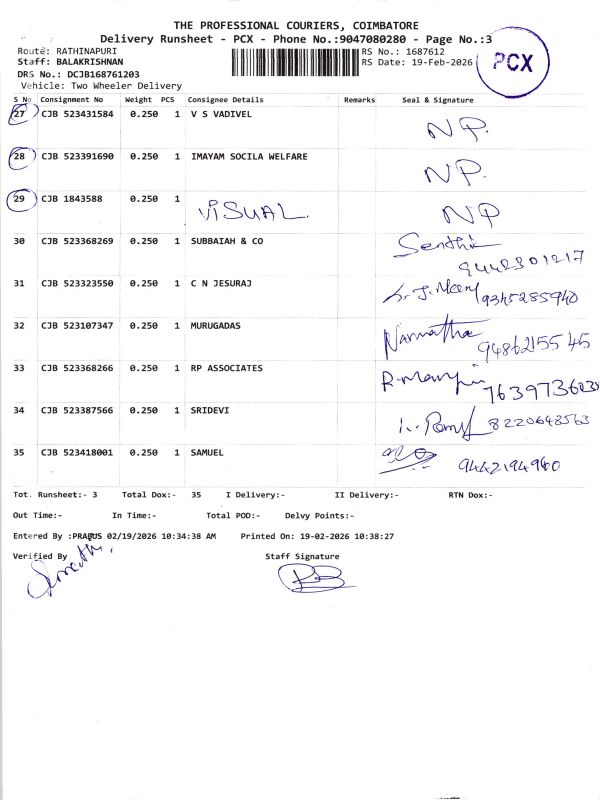 THE PROFESSIONAL COURIERS, COIMBATORE
Delivery Runsheet - PCX - Phone No.:9047080280 - Page No.:3
Route: RATHINAPURI RS No.: 1687612
Staff: BALAKRISHNAN RS Date: 19-Feb-2026
PCX
DRS No.: DCJB168761203
Vehicle: Two Wheeler Delivery
S No Consignment No Weight PCS Consignee Details Remarks Seal & Signature
27 CJB 523431584 0.250 1 V S VADIVEL NP.
28 CJB 523391690 0.250 1 IMAYAM SOCILA WELFARE NP.
29 CJB 1843588 0.250 1 VISUAL. NP
30 CJB 523368269 0.250 1 SUBBAIAH & CO Senthil
9442301217
31 CJB 523323550 0.250 1 C N JESURAJ 9345285940
32 CJB 523107347 0.250 1 MURUGADAS Narmatha
9486215545
33 CJB 523368266 0.250 1 RP ASSOCIATES
34 CJB 523387566 0.250 1 SRIDEVI 8220648563
35 CJB 523418001 0.250 1 SAMUEL 9442194960
Tot. Runsheet:- 3 Total Dox:- 35 I Delivery:- II Delivery:- RTN Dox:-
Out Time:- In Time:- Total POD:- Delvy Points:-
Entered By :PRABUS 02/19/2026 10:34:38 AM Printed On: 19-02-2026 10:38:27
Verified By Staff Signature